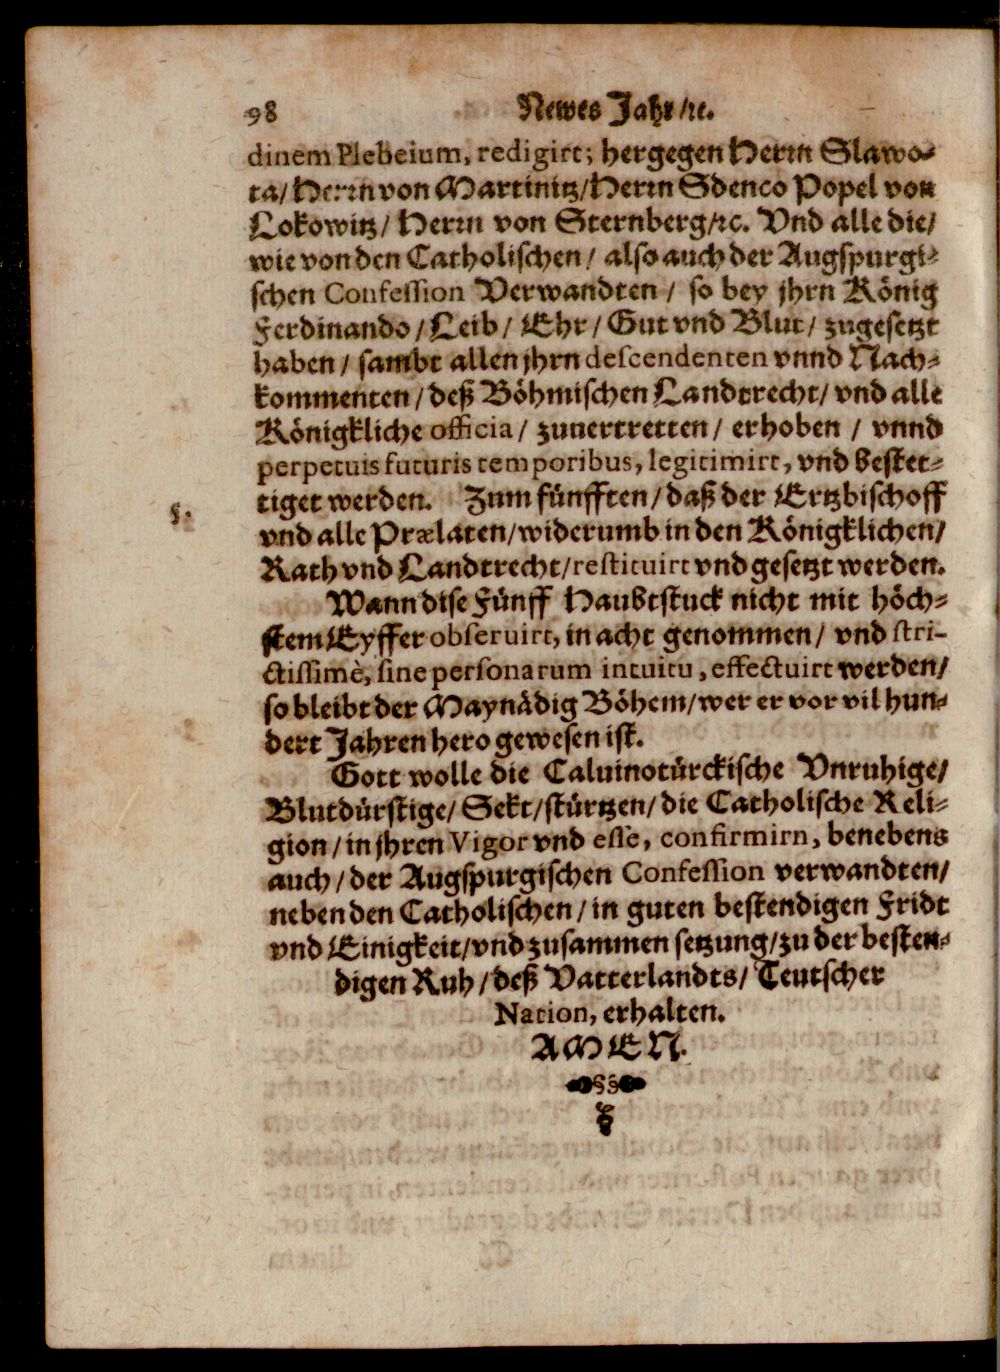 98 Newes Jahr/ꝛc.
dinem Plebeium, redigirt; hergegen Herꝛn Slawo-
ta/ Herꝛn von Martinitz/ Herꝛn Sdenco Popel von
Lokowitz/ Herꝛn von Sternberg/ꝛc. Vnd alle die/
wie von den Catholischen/ also auch der Augspurgi-
schen Confession Verwandten/ so bey jhrn König
Ferdinando/ Leib/ Ehr/ Gut vnd Blut/ zugesetzt
haben/ sambt allen jhrn descendenten vnnd Nach-
kommenten/ deß Böhmischen Landtrecht/ vnd alle
Königkliche officia/ zuuertretten/ erhoben/ vnnd
perpetuis futuris temporibus, legitimirt, vnd bestet-
tiget werden. Zum fünfften/ daß der Ertzbischoff
5.
vnd alle Prælaten/ widerumb in den Königklichen/
Rath vnd Landtrecht/ restituirt vnd gesetzt werden.
Wann dise Fünff Haubtstuck nicht mit höch-
stem Eyffer obseruirt, in acht genommen/ vnd stri-
ctissimè, sine personarum intuitu, effectuirt werden/
so bleibt der Maynädig Böhem/ wer er vor vil hun-
dert Jahren hero gewesen ist.
Gott wolle die Caluinotürckische Vnruhige/
Blutdürstige/ Sekt/ stürtzen/ die Catholische Reli-
gion/ in jhren Vigor vnd esse, confirmirn, benebens
auch/ der Augspurgischen Confession verwandten/
neben den Catholischen/ in guten bestendigen Fridt
vnd Einigkeit/ vnd zusammen setzung/ zu der besten-
digen Ruh/ deß Vatterlandts/ Teutscher
Nation, erhalten.
AMEN.